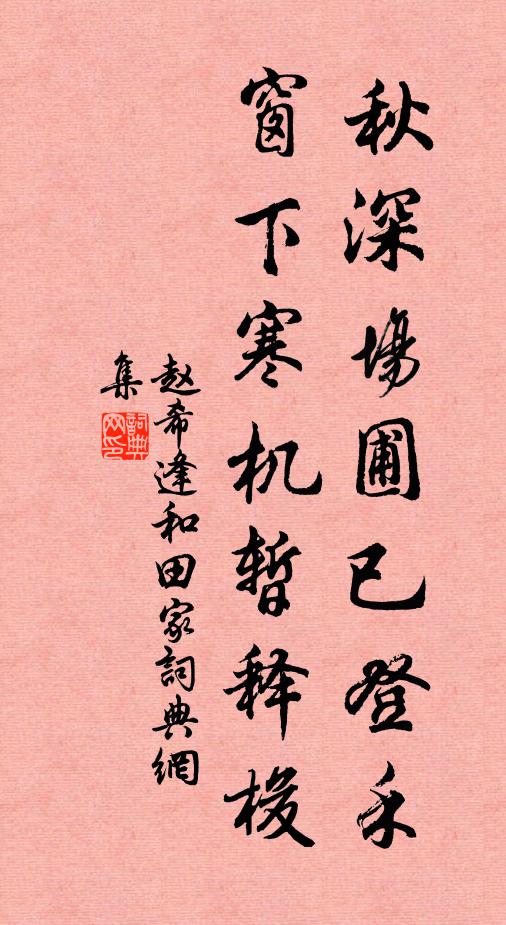 秋深場圃已登禾
窗下寒机暂释梭
赵希逢和田家詞典網
集
詞典网印